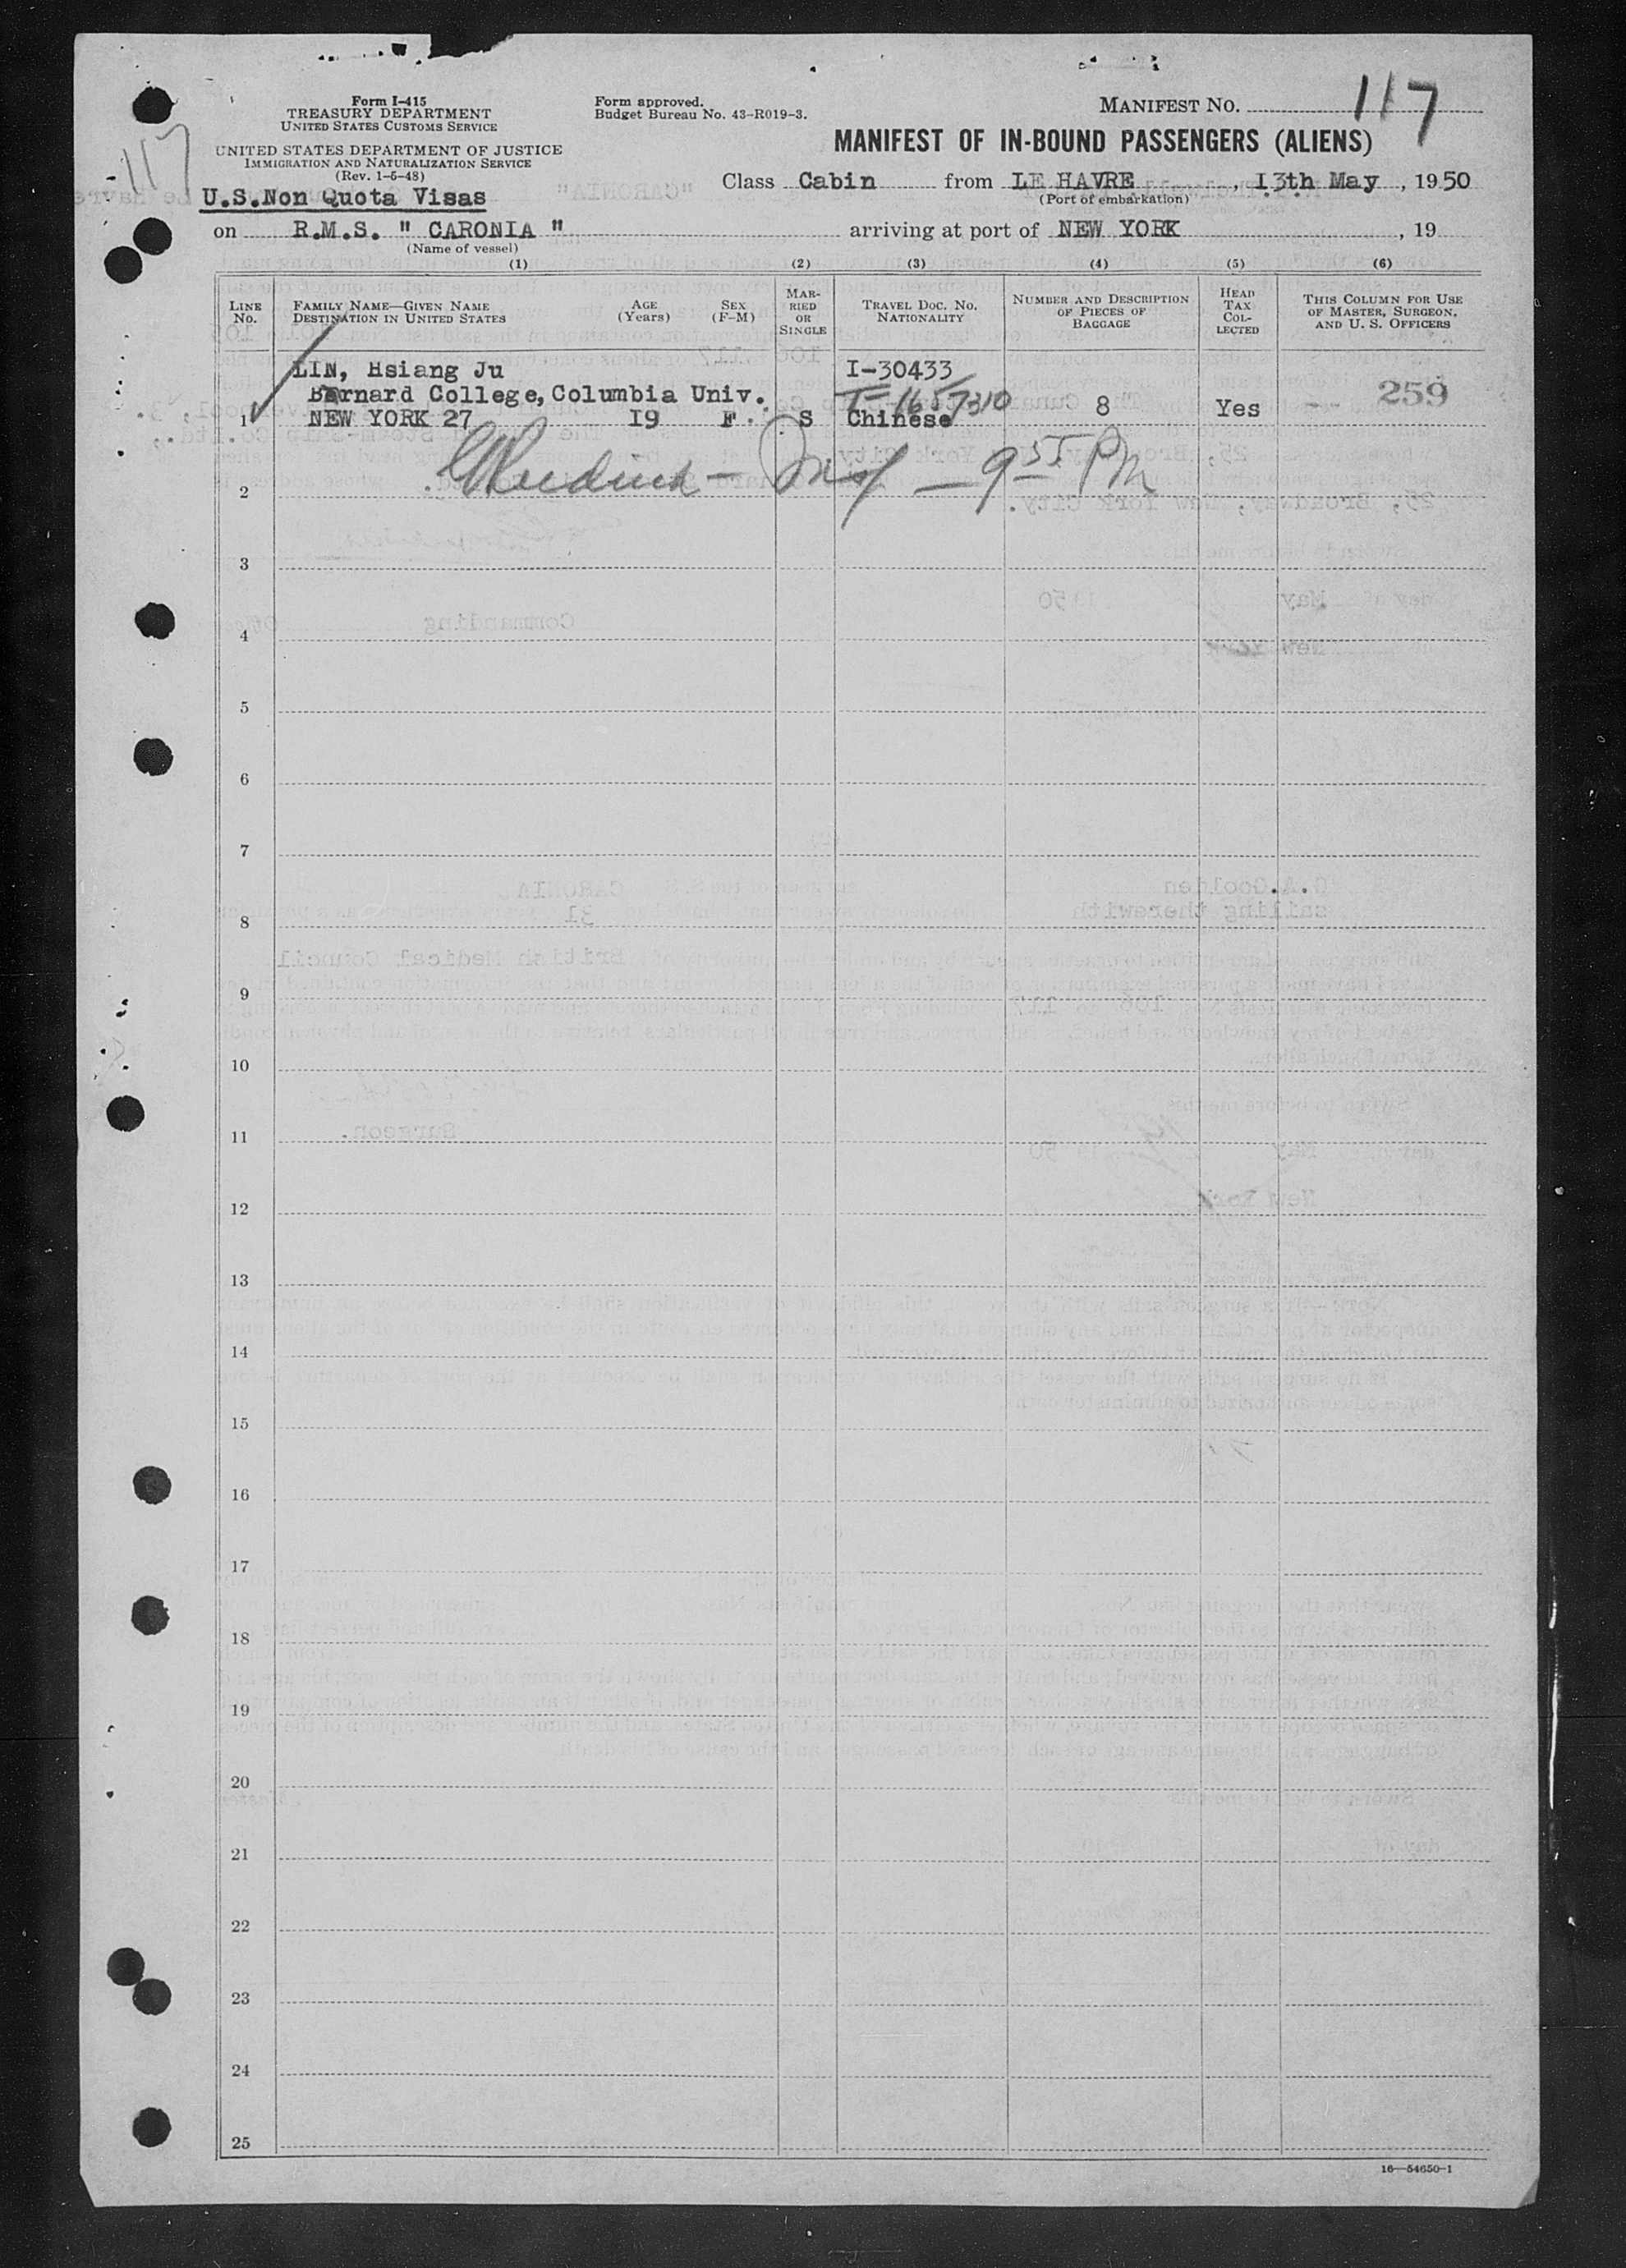 Form I-415
TREASURY DEPARTMENT
UNITED STATES CUSTOMS SERVICE
UNITED STATES DEPARTMENT OF JUSTICE
IMMIGRATION AND NATURALIZATION SERVICE
(Rev. 1-6-48)
U.S.Non Quota Visas
Form approved.
Budget Bureau No. 43-R019-3.
MANIFEST NO. 117
117
MANIFEST OF IN-BOUND PASSENGERS (ALIENS)
Class Cabin from LE HAVRE, 13th May, 1950
(Port of embarkation)
on R.M.S. " CARONIA " arriving at port of NEW YORK, 19
(Name of vessel)
(1) (2) (3) (4) (5) (6)
LINE NO.
FAMILY NAME—GIVEN NAME
DESTINATION IN UNITED STATES
AGE (Years)
SEX (F-M)
MARRIED OR SINGLE
TRAVEL DOC. NO. NATIONALITY
NUMBER AND DESCRIPTION OF PIECES OF BAGGAGE
HEAD TAX COLLECTED
THIS COLUMN FOR USE OF MASTER, SURGEON, AND U. S. OFFICERS
LIN, Hsiang Ju I-30433
Barnard College, Columbia Univ. T-1657310 259
1 NEW YORK 27 19 F. S Chinese 8 Yes --
2 9 55 PM
3
4
5
6
7
8
9
10
11
12
13
14
15
16
17
18
19
20
21
22
23
24
25
16—54650-1